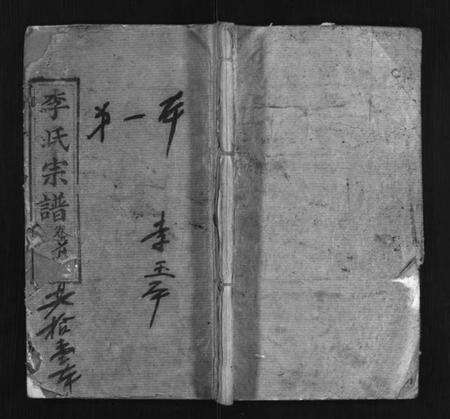 李氏宗譜
卷首
共拾壹本
第一本
李玉